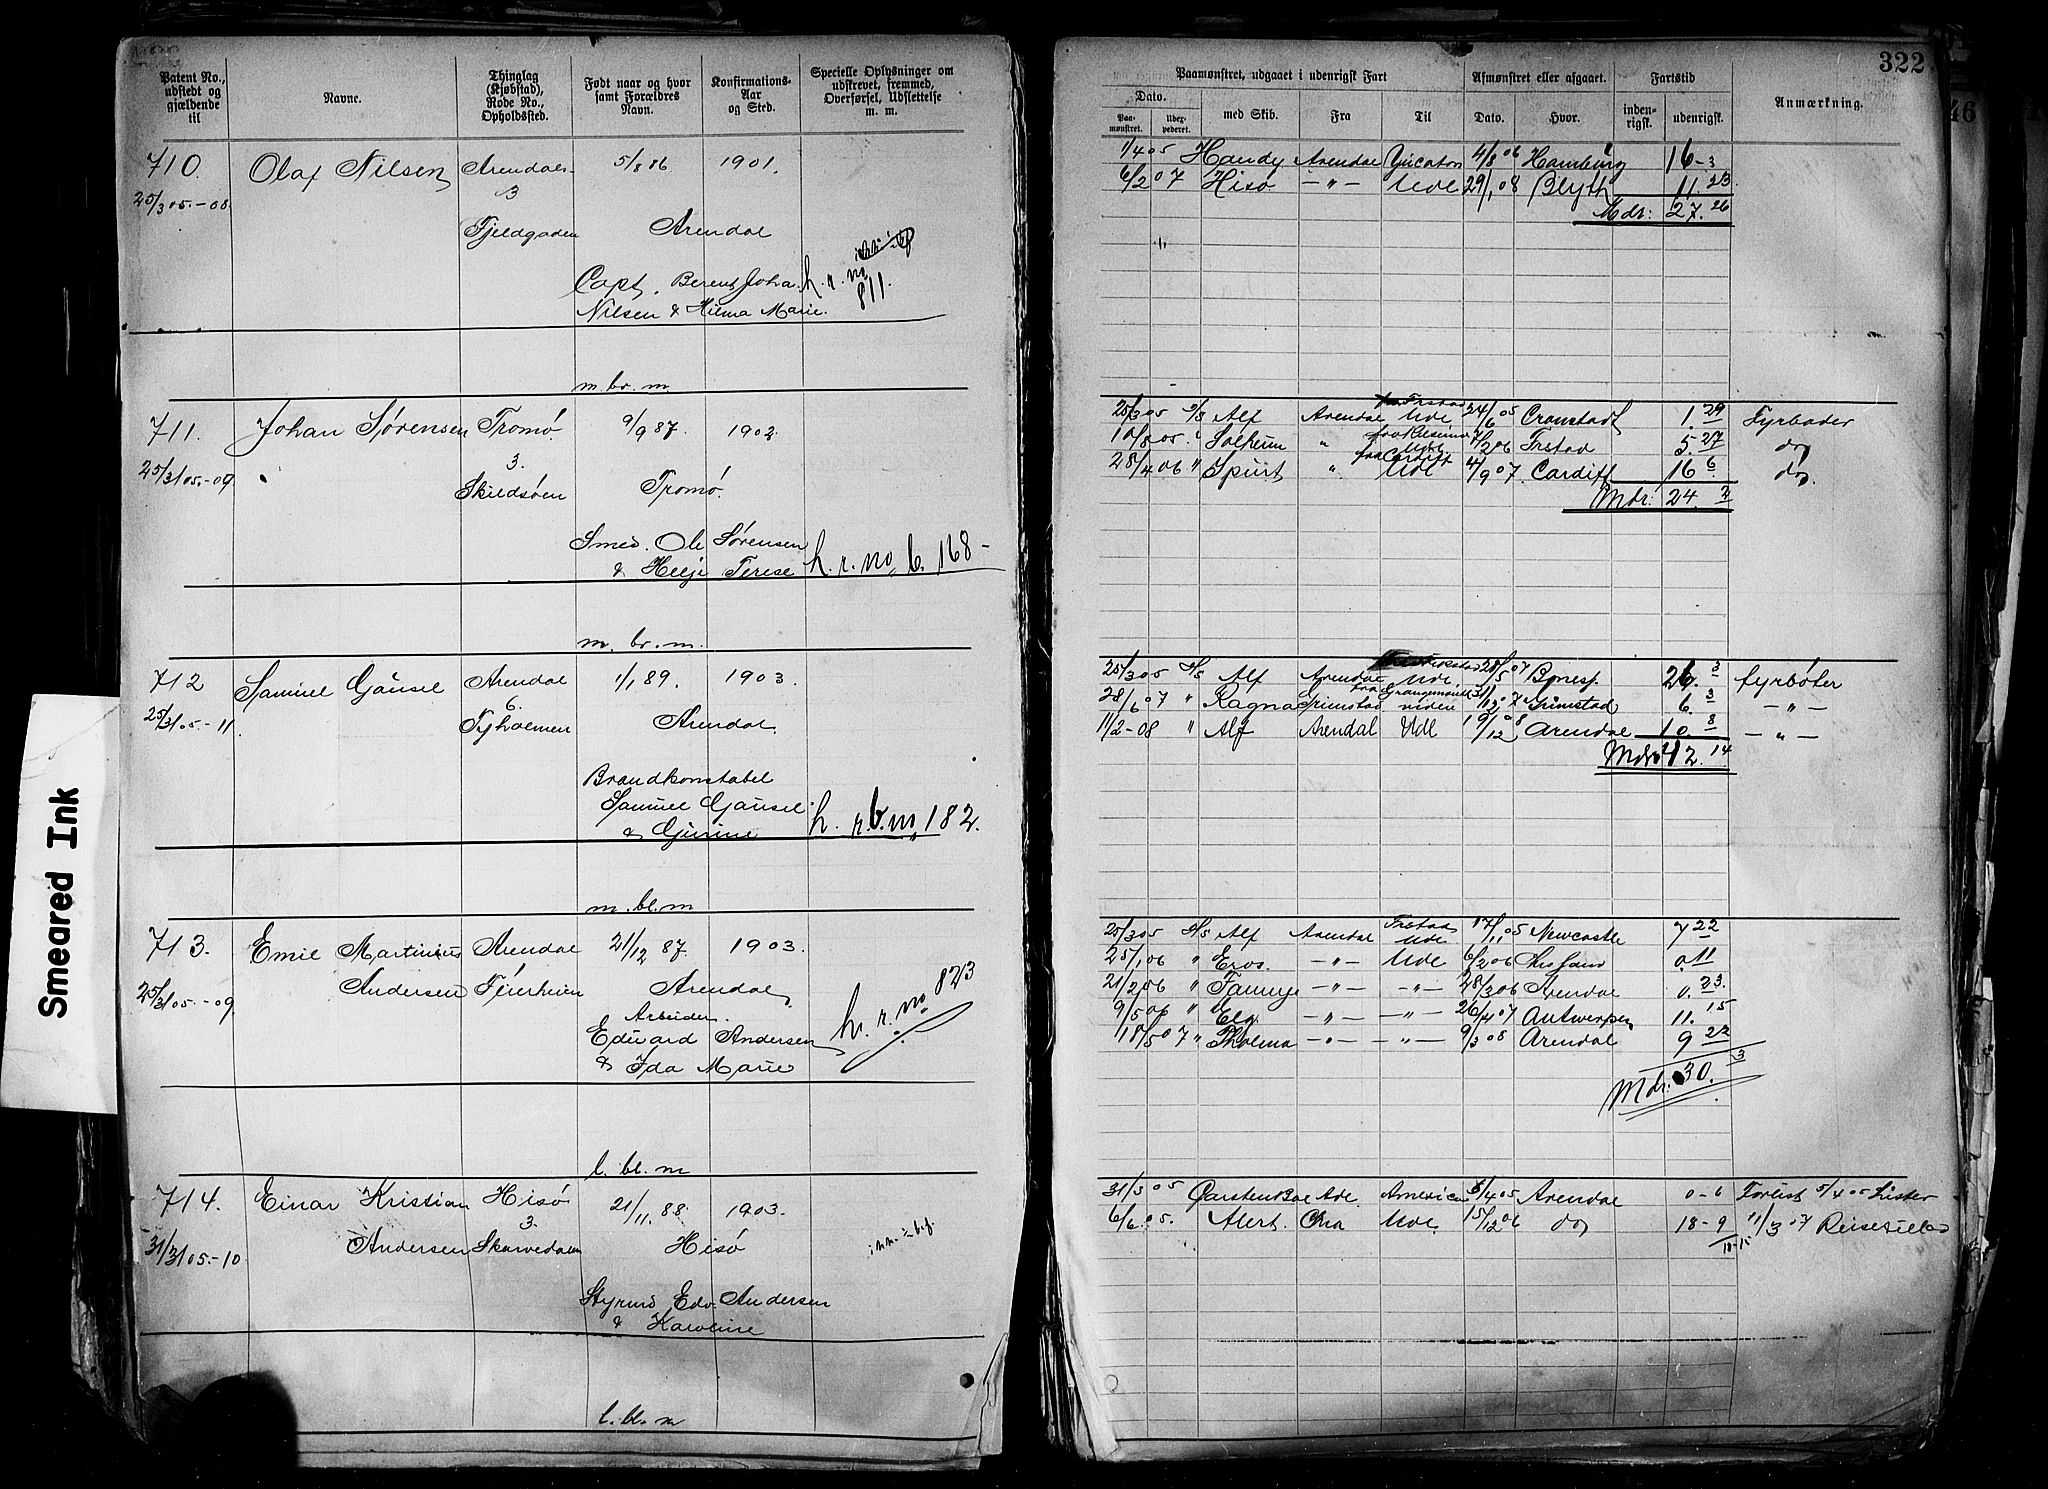 322
46
Smeared Ink
Patent No., udstedt og gjældende til
Navne.
Thinglag (Kjøbstad), Rode No., Opholdssted.
Født naar og hvor samt Forældres Navn.
Konfirmations-Aar og Sted.
Specielle Oplysninger om udskrevet, fremmed, Overførsel, Udslettelse m. m.
Paamønstret, udgaaet i udenrigsk Fart
Afmønstret eller afgaaet.
Fartstid
Anmærkning.
Dato.
Paa-mønstret.
Udex-pederet.
med Skib.
Fra
Til
Dato.
Hvor.
inden-rigsk.
udenrigsk.
710. Olaf Nilsen Arendal 5/8 86 1901.
25/3 05.-08. 3
Fjeldgaden Arendal
Capt. Berent Joha. h. r. no 811.
Nilsen & Hilma Marie.
m. br. m.
1/4 05 Handy Arendal Yucatan 4/8 06 Hamburg 16-3
6/2 07 Hisø -"- Udl 29/1 08 Blyth 11. 23
Mdr: 27. 26
711. Johan Sørensen Tromø. 9/9 87. 1902
25/3 05.-09. 3.
Skildsøen Tromø.
Smed. Ole Sørensen
& Helje Terese h. r. no. b. 168-
m. br. m.
25/3 05 Alf Arendal Udl 24/6 05 Cronstadt 1. 29 Fyrbøder
10/8 05 Solheim " Udl 7/2 06 Frstad 5. 27 do
28/4 06 " Spurt " fra Cardiff Udl 4/9 07 Cardiff 16 6 do.
Mdr: 24. 2
712 Samuel Gausel Arendal 1/1 89. 1903.
25/3 05.-11. 6.
Tyholmen Arendal
Brandkonstabel
Samuel Gausel
& Gurine h. r. b. no 182.
m. bl. m
25/3 05 Alf Arendal Udl 28/5 07 26. 3 fyrbøter
28/6 07 " Ragna Grimstad fra Grangemouth 31/12 07 Grimstad 6. 3 -"-
11/2-08 " Alf Arendal Udl 19/12 08 Arendal 10. 8 -"-
Mdr 42. 14
713. Emil Martinius Arendal 21/12 87. 1903.
25/3 05.-09 Andersen Arendal
Arbeider.
Eduard Andersen h. r. no 823
& Ida Marie
l. bl. m
25/3 05 Alf Arendal Frstad Udl 17/11 05 Newcastle 7 22
25/1 06 " Eros. -"- Udl 6/2 06 0. 11
21/2 06 " -"- -"- 28/3 06 Arendal 0. 23.
9/5 06 " Elg -"- -"- 26/4 07 Antwerpen 11. 15
18/5 07 " Tholma -"- -"- 9/3 08 Arendal 9 22
Mdr: 30. 3
714. Einar Kristian Hisø 21/11. 88. 1903.
31/3 05.-10 Andersen 3.
Skarvedalen Hisø
Styrmd Edv. Andersen
& Karoline
l. bl. m
31/3 05 Carsten Boe Adl. American 5/4 05 Arendal 0-6 Forlist 5/4 05 Lister
6/6 05. Alert. Udl. 15/12 06 do 18-9 11/3 07
18-15